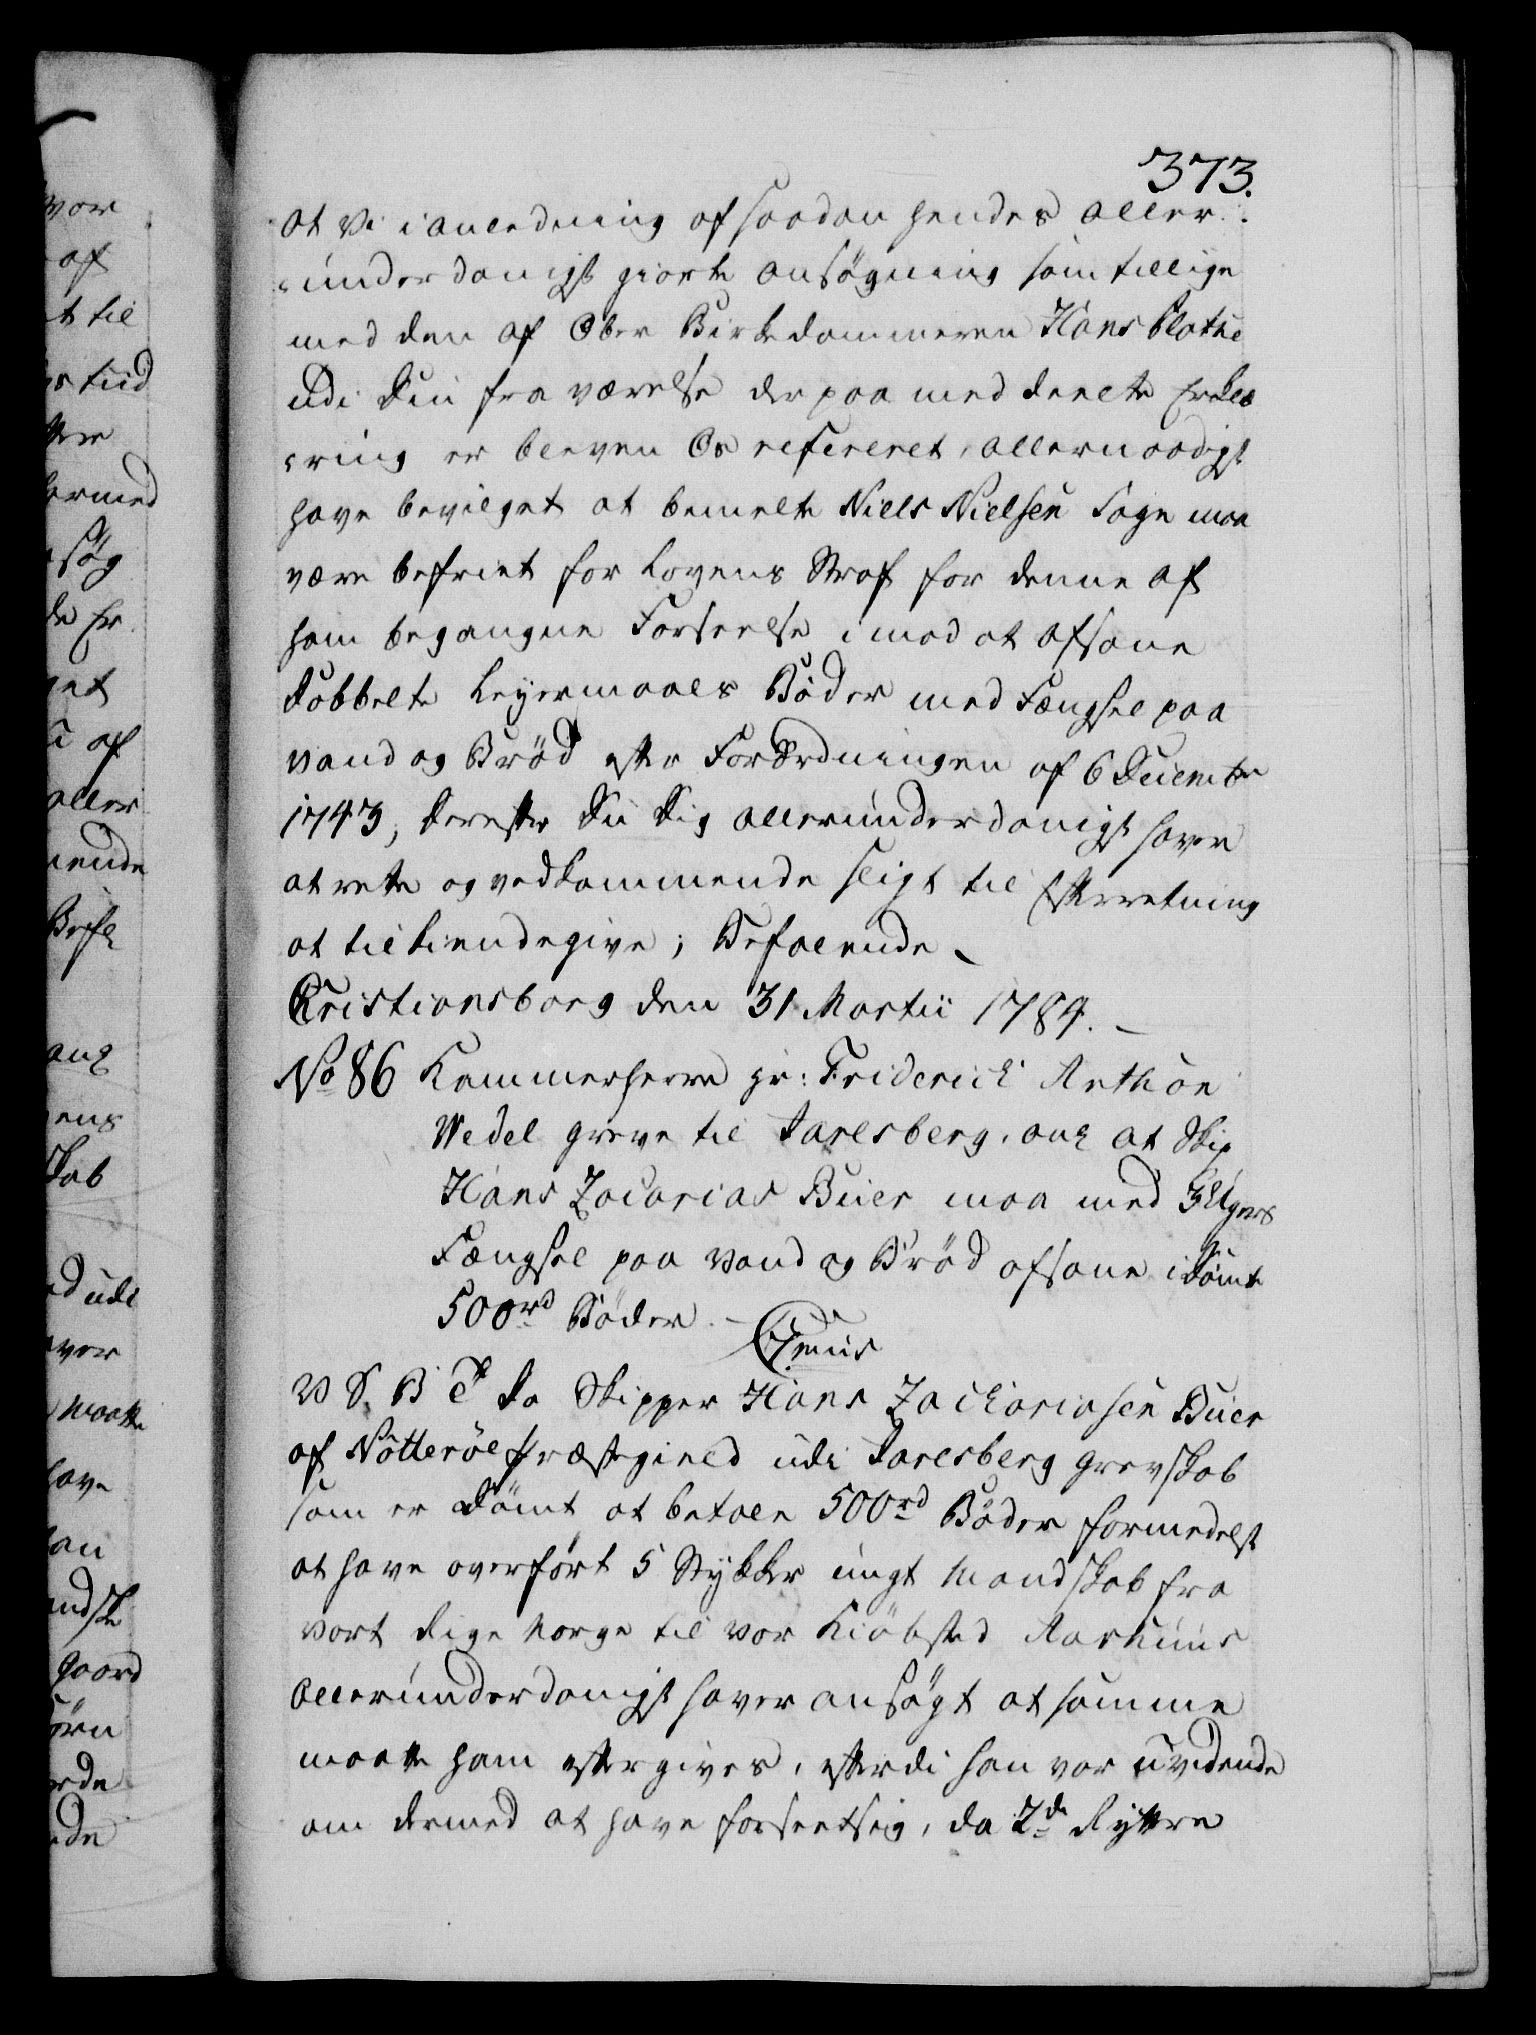 373.
at Vi i anledning af saadan hendes aller-
underdanigst giorte ansøgning som tillige
med den af Ober Birkedommeren Hans Plathe
udi Din fra værelse der paa meddeelte Erklæ
ring er bleven Os refereret, allernaadigst
have bevilget at bemelte Niels Nielsen Fage maa
være befriet for Lovens Straf for denne af
ham begangne Forseelse imod at afsone
dobbelte Leyermaals Bøder med Fængsel paa
vand og Brød efter Forordningen af 6 Decembr
1743, derefter Du Dig allerunderdanigst haver
at rette og vedkommende sligt til Efterretning
at tilkiendegive; Befalende
Cristiansborg den 31 Martii 1784.
No 86 Kammerherre hr: Friderich Anthon
Wedel greve til Jarlsberg, ang at Skip
Hans Zacarias Buer maa med 3 Ugers
Fængsel paa vand og Brød afsone idømte
500rd Bøder.
C7mus
V S. B etc Da Skipper Hans Zachariasen Buer
af Nøtterøe Præstegield udi Jarlsberg grevskab
som er dømt at betale 500rd Bøder formedelst
at have overført 5 Stykker ungt Mandskab fra
vort Rige Norge til vor Kiøbsted Aarhuus
allerunderdanigst haver ansøgt at samme
maatte ham eftergives, efterdi han var uvidende
om dermed at have forseet sig, da 2de Ryttere